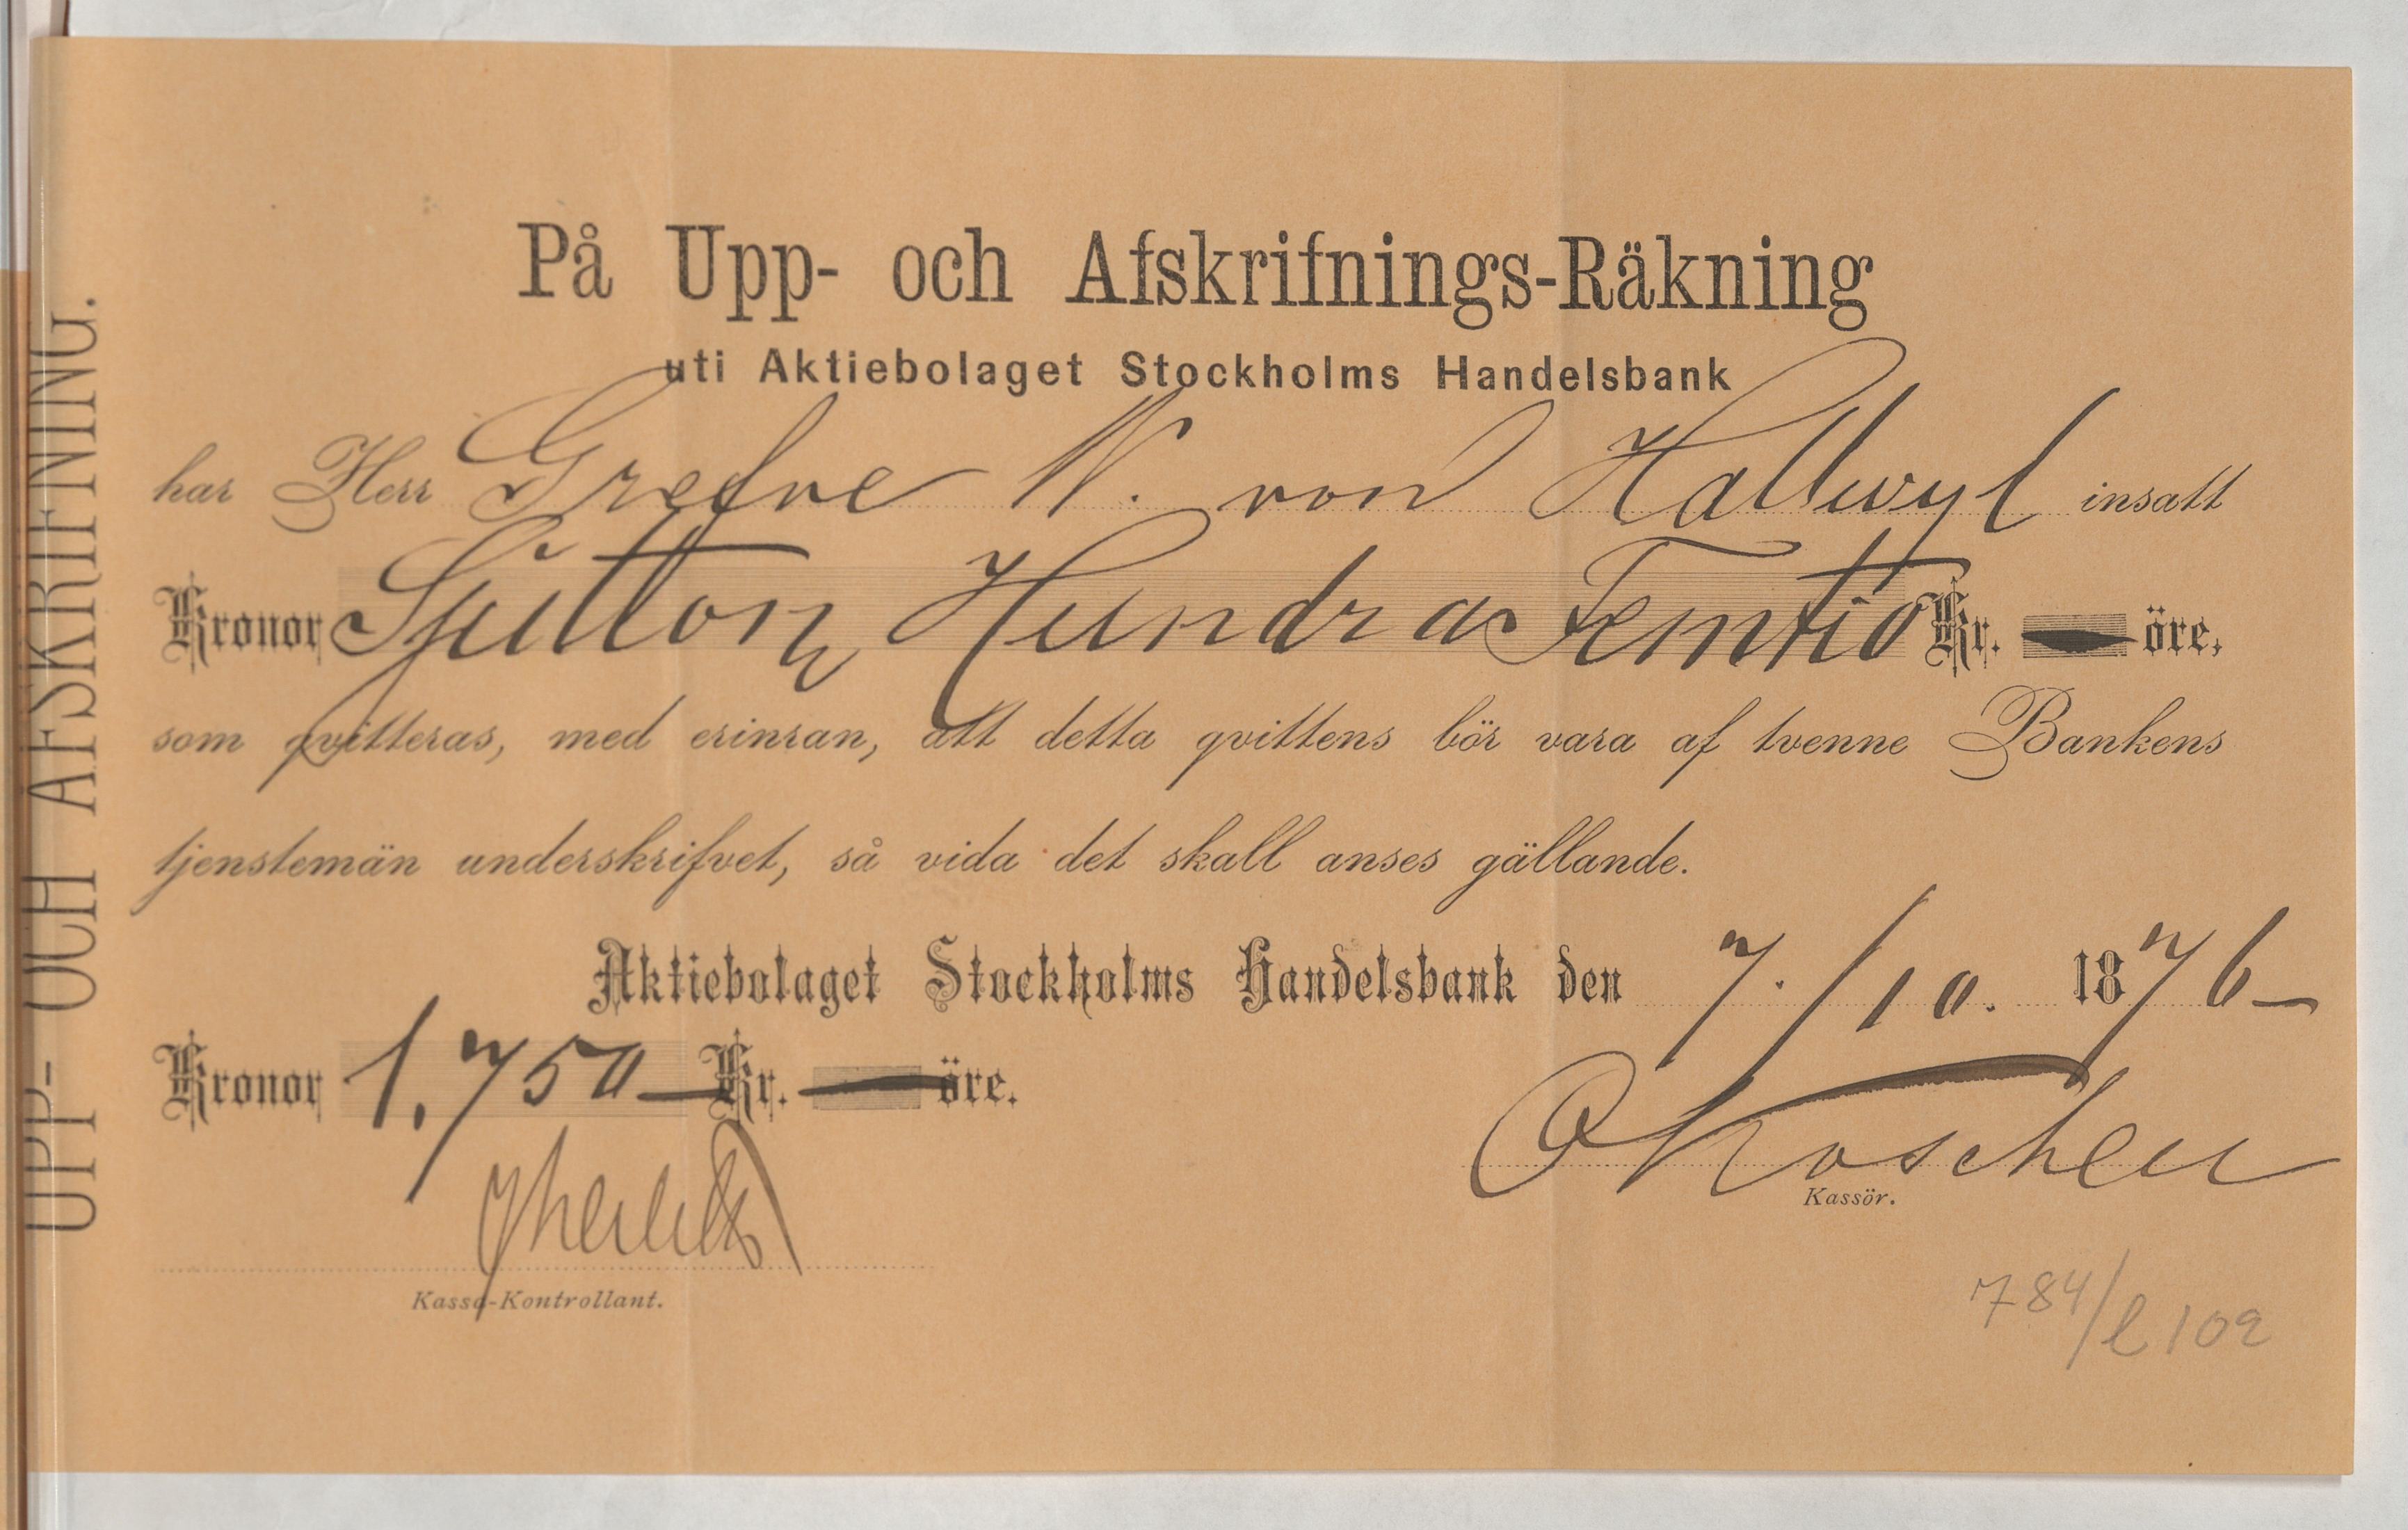 UPP- OCH AFSKRIFNING.
På Upp- och Afskrifnings-Räkning
uti Aktiebolaget Stockholms Handelsbank
har Herr Grefve W. von Hallwyl insatt
Kronor Sjutton Hundra Femtio Kr. — öre,
som qvitteras, med erinran, att detta qvittens bör vara af tvenne Bankens
tjenstemän underskrifvet, så vida det skall anses gällande.
Aktiebolaget Stockholms Handelsbank den 7./10. 1876—
Kronor 1,750— Kr. — öre.
Kassör.
Kassa-Kontrollant.
784/l 102